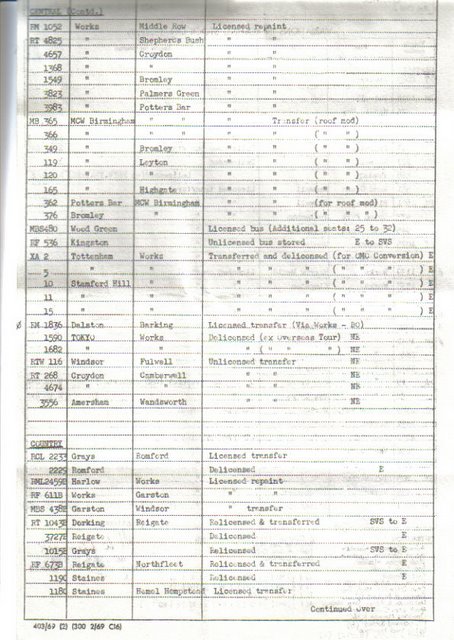 CENTRAL (Contd.)
RM 1052 Works Middle Row Licensed repaint
RT 4825 " Shepherds Bush " "
4657 " Croydon " "
1368 " " " "
1549 " Bromley " "
3823 " Palmers Green " "
3983 " Potters Bar " "
MB 365 MCW Birmingham " " Transfer (roof mod)
366 " " " " ( " " )
349 " Bromley " ( " " )
119 " Leyton " ( " " )
120 " " " ( " " )
165 " Highgate " ( " " )
362 Potters Bar MCW Birmingham " (for roof mod)
376 Bromley " " " ( " " " )
MBS480 Wood Green Licensed bus (Additional seats: 25 to 32)
RF 536 Kingston Unlicensed bus stored E to SVS
XA 2 Tottenham Works Transferred and delicensed (for OMO Conversion) E
5 " " " " " ( " " " ) E
10 Stamford Hill " " " " ( " " " ) E
11 " " " " " ( " " " ) E
15 " " " " " ( " " " ) E
Ø RM 1836 Dalston Barking Licensed transfer (Via Works - BO)
1590 TOKYO Works Delicensed (ex Overseas Tour) NE
1682 " " " ( " " " ) NE
RTW 116 Windsor Fulwell Unlicensed transfer NE
RT 268 Croydon Camberwell " " NE
4674 " " " " NE
3556 Amersham Wandsworth " " NE
COUNTRY
RCL 2233 Grays Romford Licensed transfer
2229 Romford Delicensed E
RML2459 Harlow Works Licensed repaint
RF 611B Works Garston " "
MBS 438 Garston Windsor " transfer
RT 1043 Dorking Reigate Relicensed & transferred SVS to E
3727E Reigate Delicensed E
1015 Grays Relicensed SVS to E
RF 673B Reigate Northfleet Relicensed & transferred E
119C Staines Delicensed E
118C Staines Hemel Hempstead Licensed transfer
Continued over
403/69 (2) (300 2/69 C16)